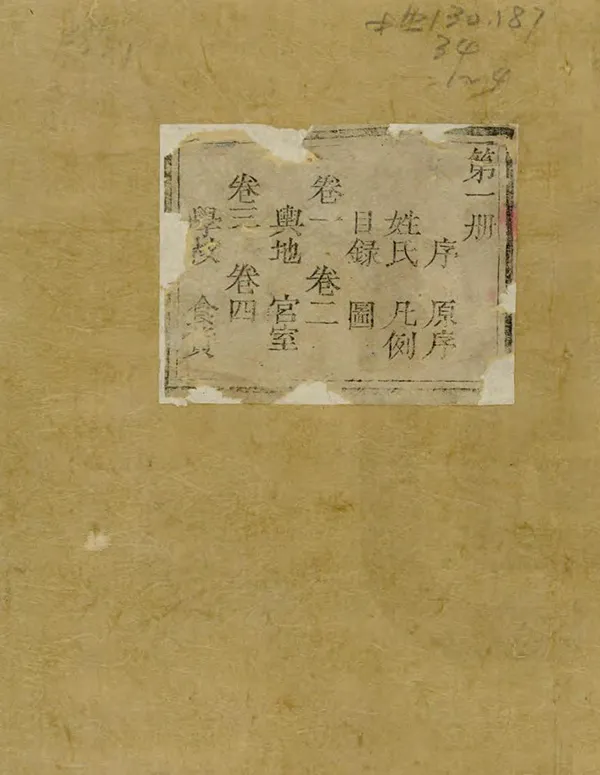 130.187
34
124
第一册
序 原序
姓氏 凡例
目録 圖
卷一 卷二
輿地 宮室
卷三 卷四
學校 食貨